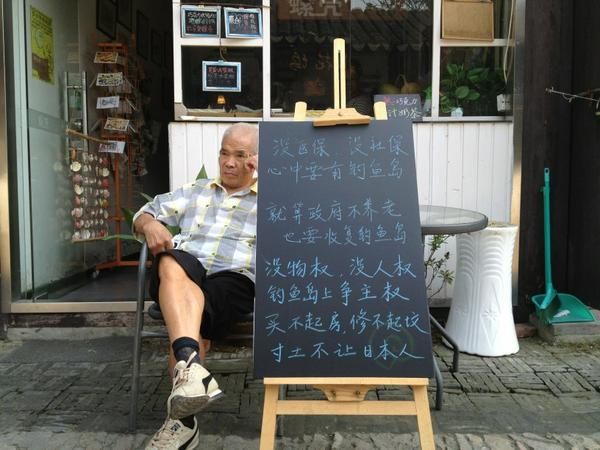 没医保、没社保
心中要有钓鱼岛
就算政府不养老
也要收复钓鱼岛
没物权、没人权
钓鱼岛上争主权
买不起房，修不起坟
寸土不让日本人